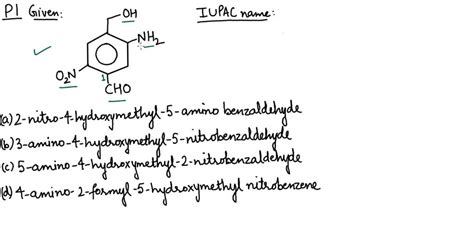 P1 Given: IUPAC name:
OH
NH2
O2N
1
CHO
(a) 2-nitro-4-hydroxymethyl-5-amino benzaldehyde
(b) 3-amino-4-hydroxymethyl-5-nitrobenzaldehyde
(c) 5-amino-4-hydroxymethyl-2-nitrobenzaldehyde
(d) 4-amino-2-formyl-5-hydroxymethyl nitrobenzene